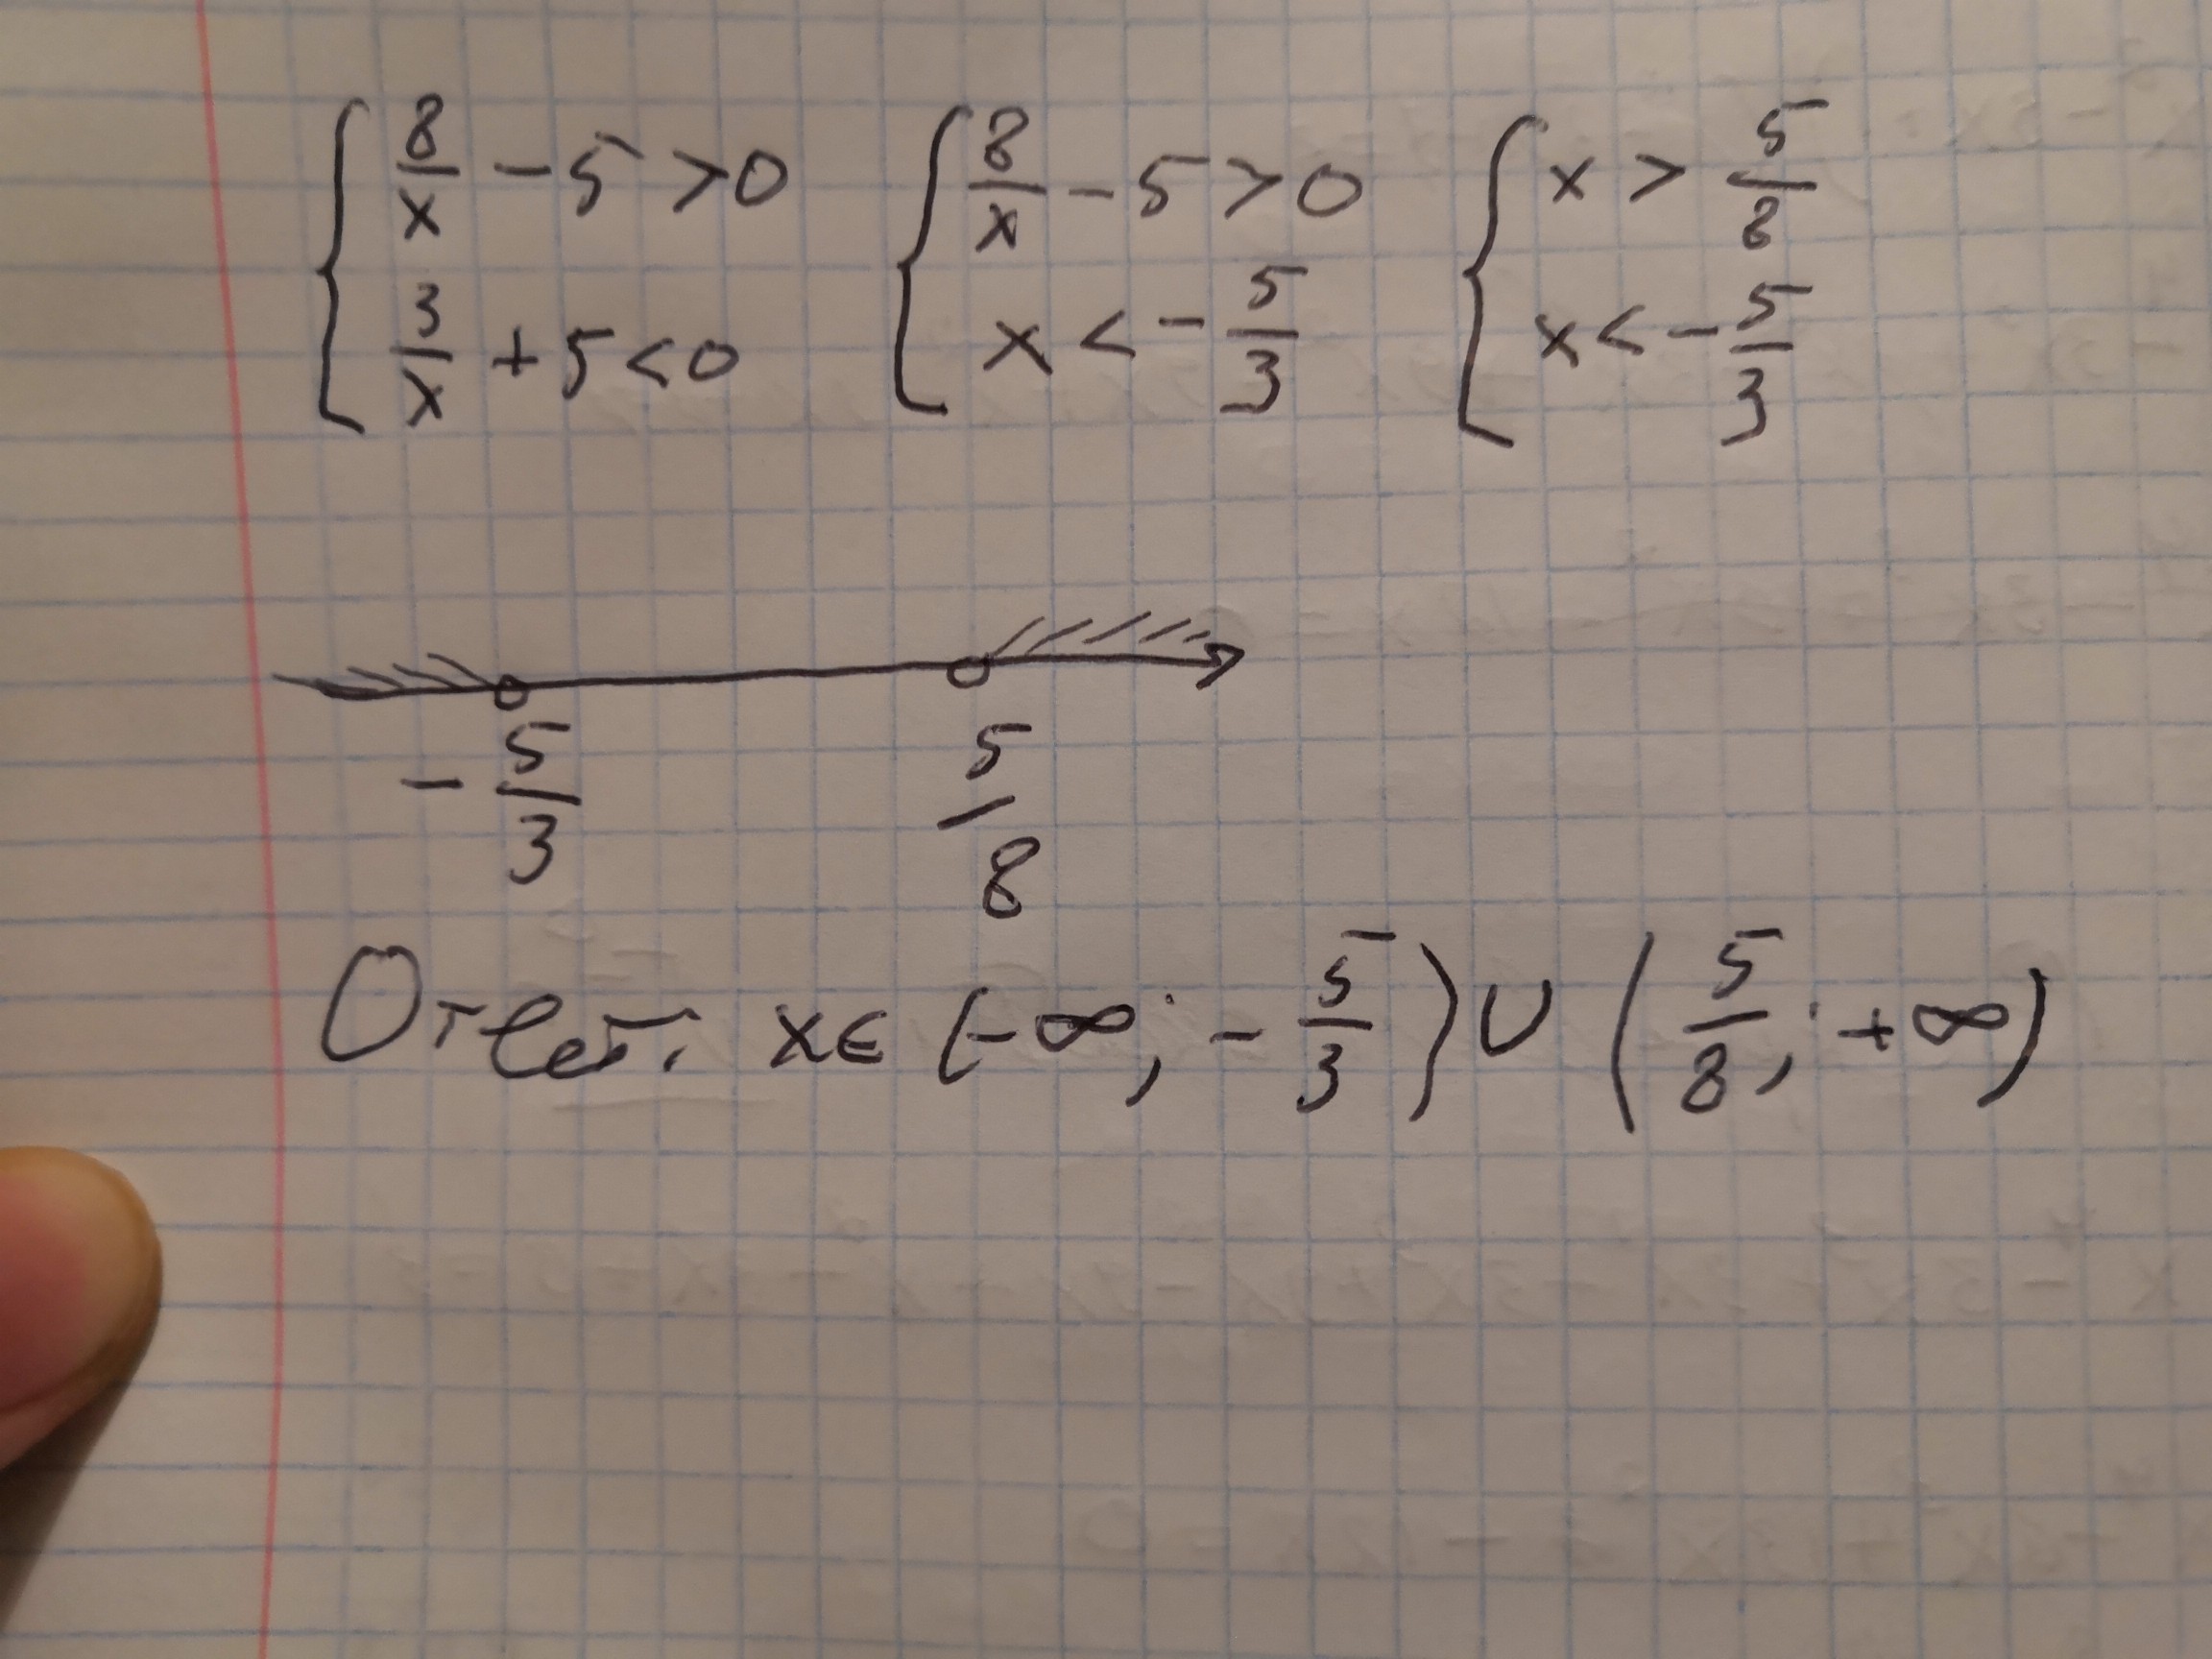 { 8/x - 5 > 0 { 8/x - 5 > 0 { x > 5/8
3/x + 5 < 0 x < - 5/3 x < - 5/3
- 5/3 5/8
Ответ: x ∈ (-∞; - 5/3) ∪ (5/8; +∞)